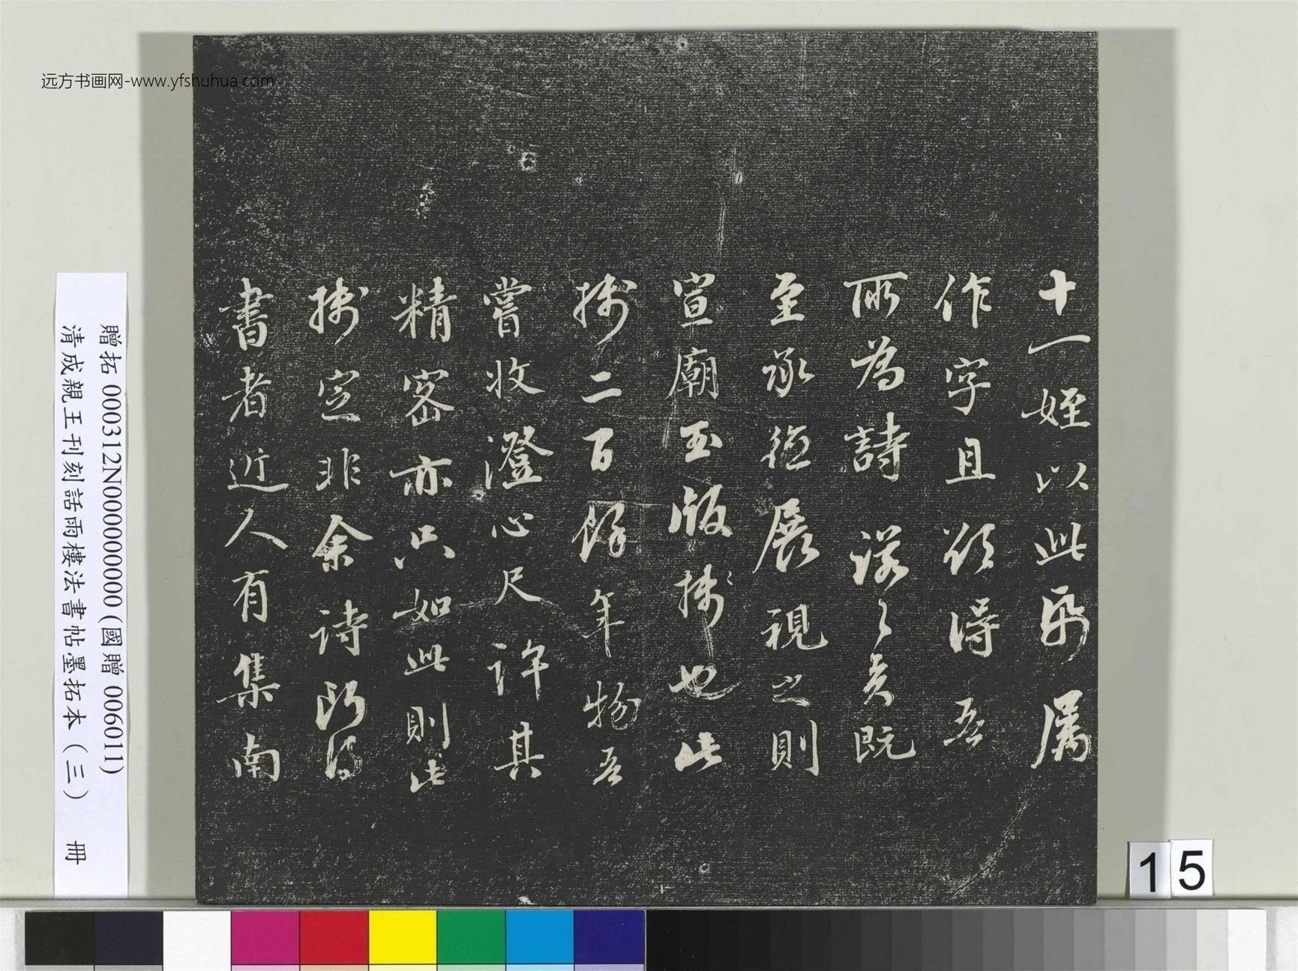 十一姪以此帋属
作字且欲得吾
所為詩諾之矣既
至承德展視之則
宣廟玉版牋也此
牋二百餘年物吾
嘗收澄心尺許其
精密亦只如此則此
牋定非余詩所得
書者近人有集南
贈拓 000312N000000000 (國贈 006011)
清成親王刊刻詒雨樓法書帖墨拓本 (三) 冊
远方书画网-www.yfshuhua.com
15